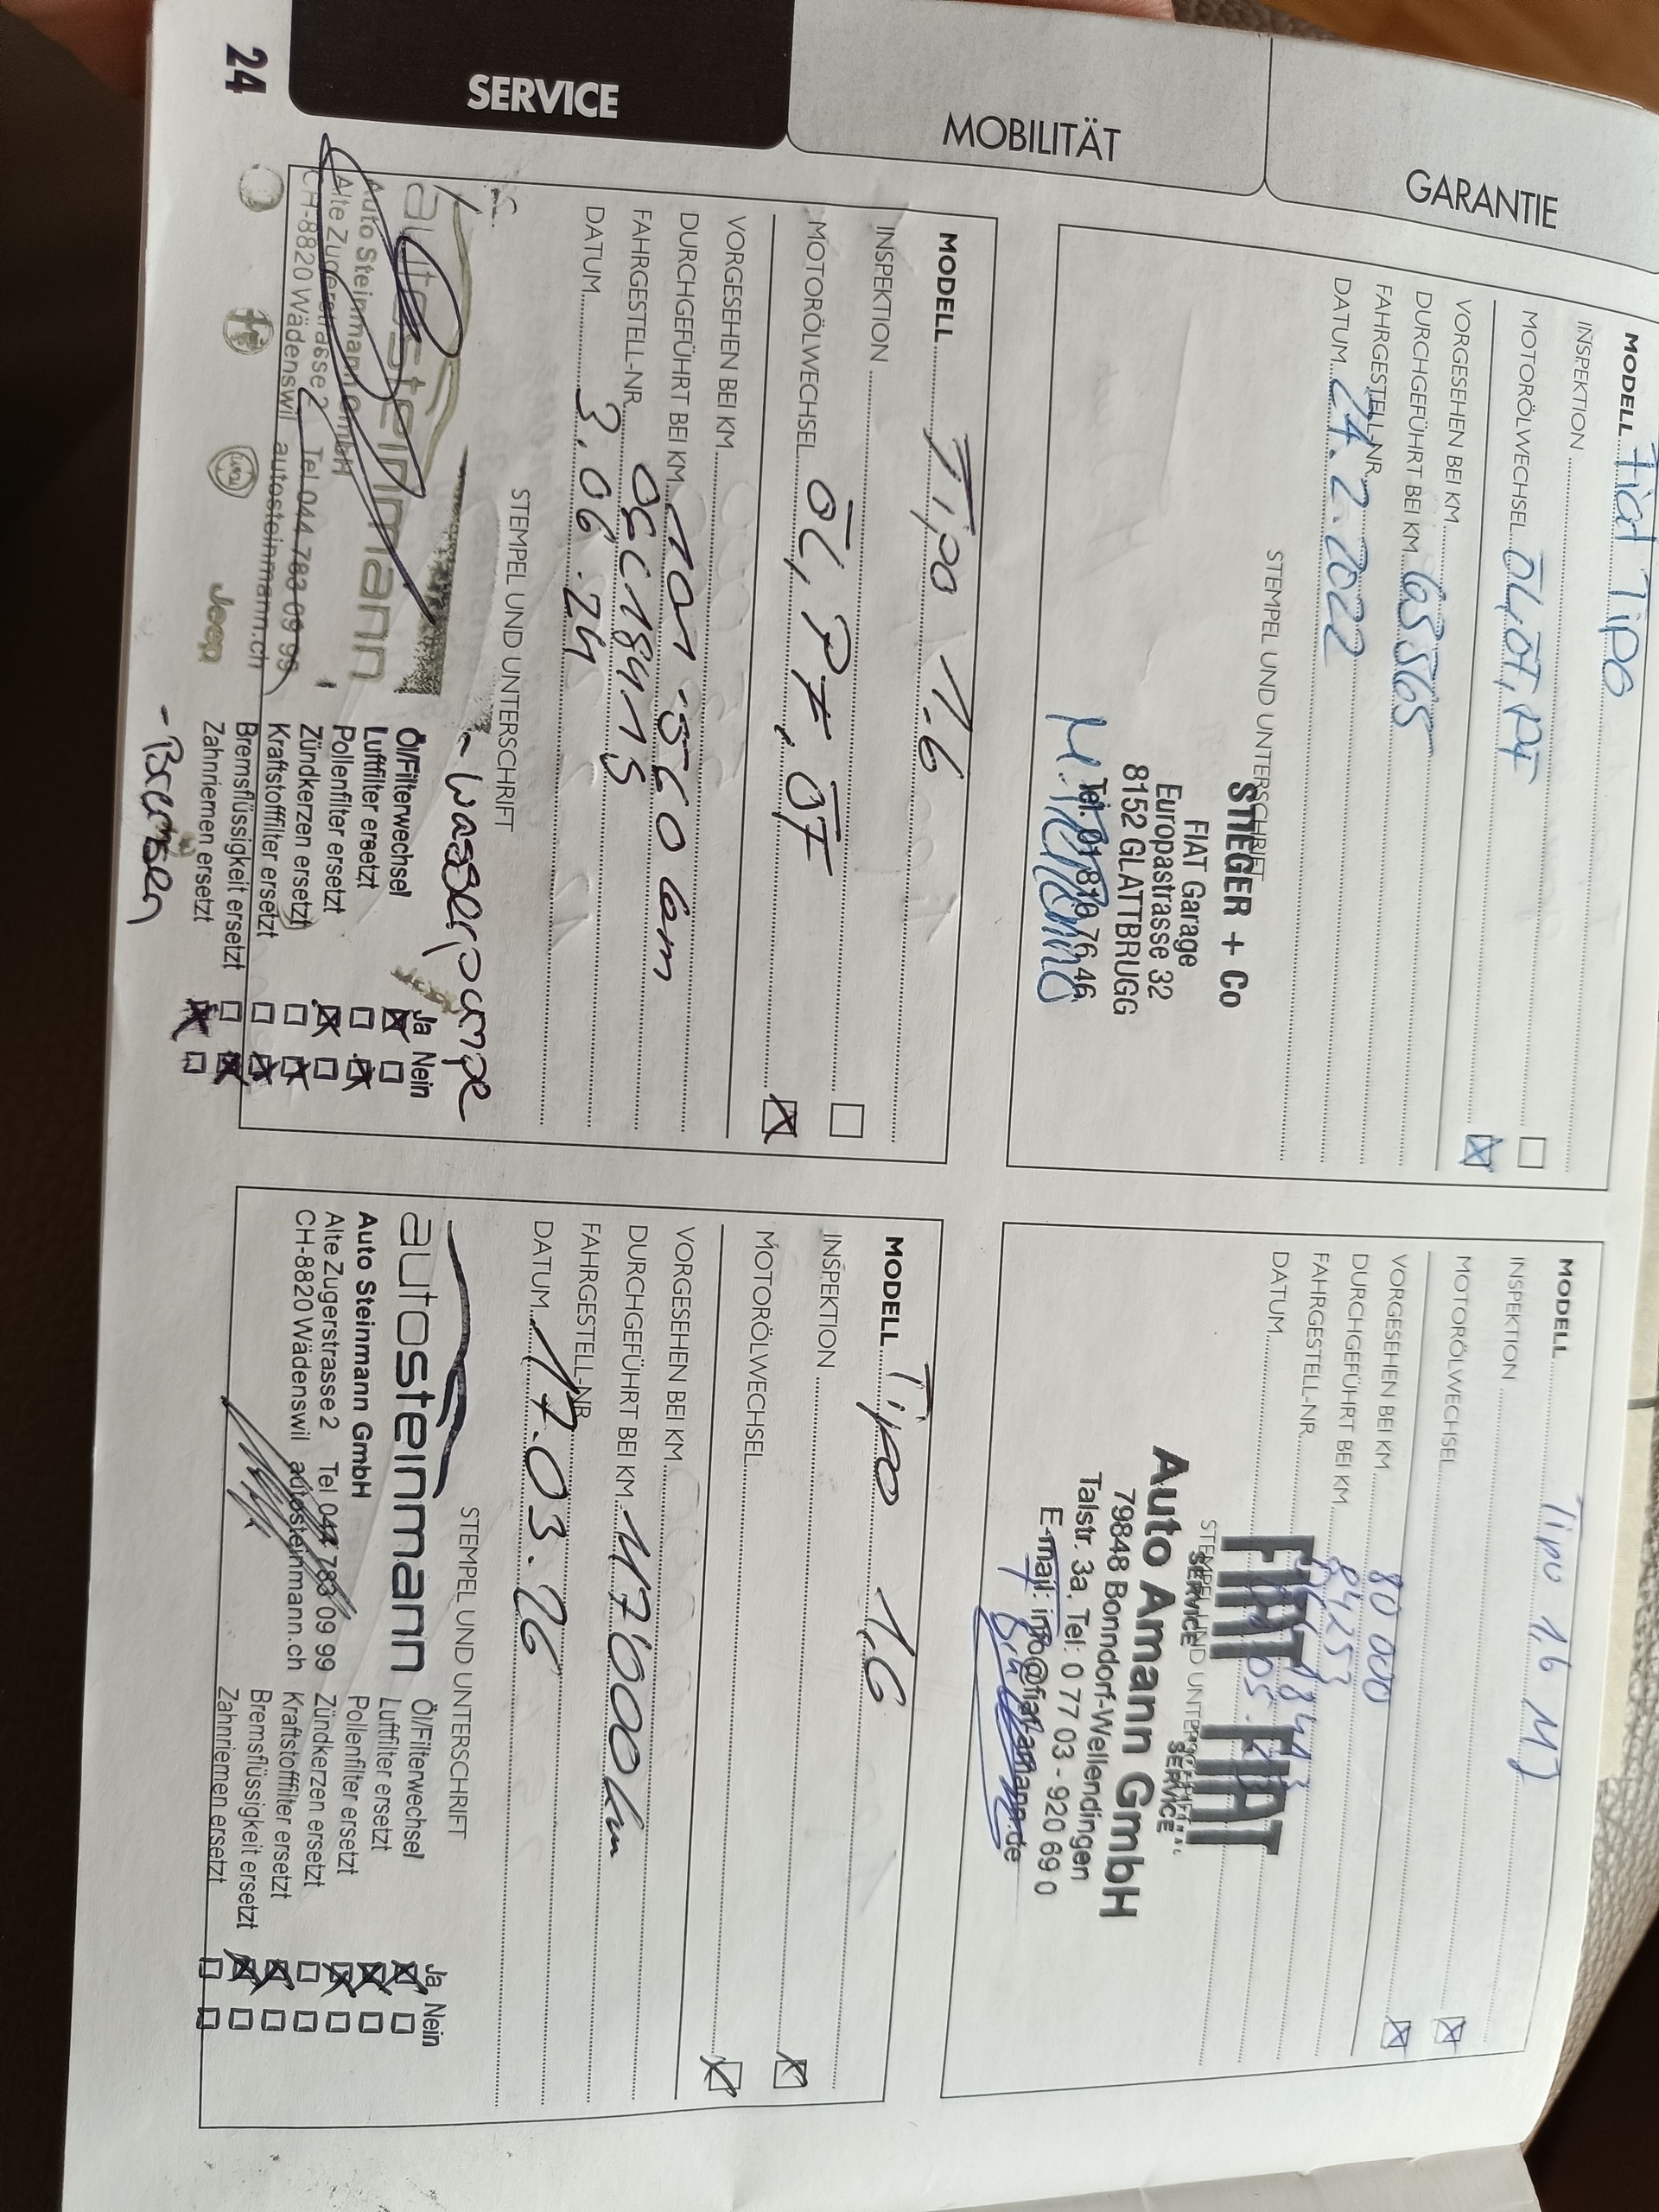 GARANTIE
MOBILITÄT
SERVICE
24
MODELL Fiat Tipo
INSPEKTION
MOTORÖLWECHSEL ÖL, ÖF, PF
VORGESEHEN BEI KM
DURCHGEFÜHRT BEI KM 65565
FAHRGESTELL-NR.
DATUM 24.2.2022
STEMPEL UND UNTERSCHRIFT
STIEGER + Co
FIAT Garage
Europastrasse 32
8152 GLATTBRUGG
Tel. 01 810 76 46
MODELL Tipo 1,6 MJ
INSPEKTION
MOTORÖLWECHSEL
VORGESEHEN BEI KM 80 000
DURCHGEFÜHRT BEI KM 84253
FAHRGESTELL-NR.
DATUM
STEMPEL UND UNTERSCHRIFT
FIAT FIAT
SERVICE SERVICE
Auto Amann GmbH
79848 Bonndorf-Wellendingen
Talstr. 3a, Tel: 0 77 03 - 920 69 0
E-mail: info@fiat-amann.de
MODELL Tipo 1.6
INSPEKTION
MOTORÖLWECHSEL ÖL, PF, ÖF
VORGESEHEN BEI KM
DURCHGEFÜHRT BEI KM 101
FAHRGESTELL-NR.
DATUM 3.06.24
STEMPEL UND UNTERSCHRIFT
- Wasserpumpe
autosteinmann
Auto Steinmann GmbH
Alte Zugerstrasse 2 Tel 044 783 09 99
CH-8820 Wädenswil autosteinmann.ch
Jeep
Ja Nein
Öl/Filterwechsel
Luftfilter ersetzt
Pollenfilter ersetzt
Zündkerzen ersetzt
Kraftstofffilter ersetzt
Bremsflüssigkeit ersetzt
Zahnriemen ersetzt
- Bremsen
MODELL Tipo 1,6
INSPEKTION
MOTORÖLWECHSEL
VORGESEHEN BEI KM
DURCHGEFÜHRT BEI KM 117'000 km
FAHRGESTELL-NR.
DATUM 17.03.26
STEMPEL UND UNTERSCHRIFT
autosteinmann
Auto Steinmann GmbH
Alte Zugerstrasse 2 Tel 044 783 09 99
CH-8820 Wädenswil autosteinmann.ch
Ja Nein
Öl/Filterwechsel
Luftfilter ersetzt
Pollenfilter ersetzt
Zündkerzen ersetzt
Kraftstofffilter ersetzt
Bremsflüssigkeit ersetzt
Zahnriemen ersetzt